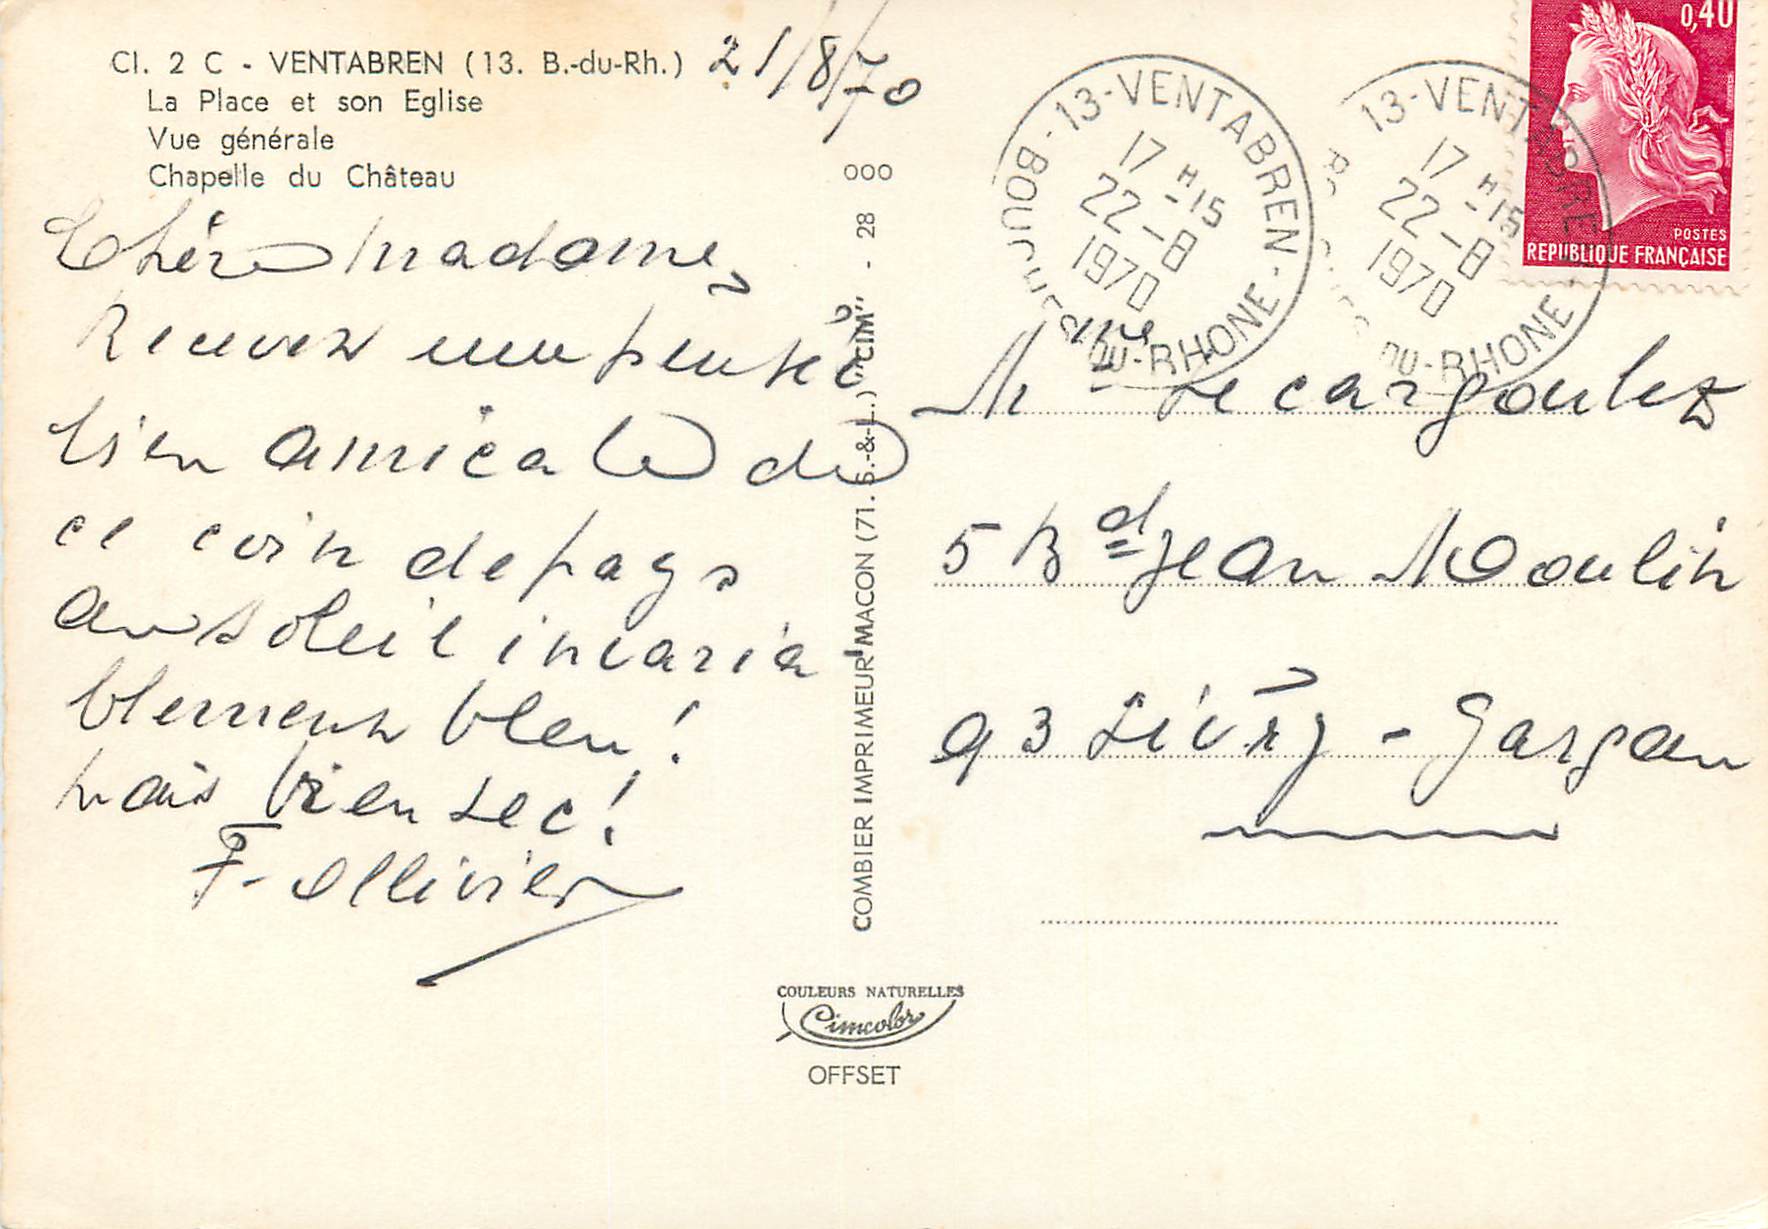 Cl. 2 C - VENTABREN (13. B.-du-Rh.)
La Place et son Eglise
Vue générale
Chapelle du Château
21/8/70
Chère Madame,
Recevez une pensée
bien amicale de
ce coin de pays
au soleil invaria
blement bleu !
mais bien sec !
F. Ollivier
COMBIER IMPRIMEUR MACON (71. S.-&-L.) "CIM" - 28 000
COULEURS NATURELLES
Cimcolor
OFFSET
13-VENTABREN - BOUCHES-DU-RHONE -
17 H -15
22-8
1970
13-VENTABREN - DU-RHONE -
17 H -15
22-8
1970
0,40
POSTES
REPUBLIQUE FRANÇAISE
Mme Lecargoulez
5 Bd Jean Moulin
93 Livry-Gargan